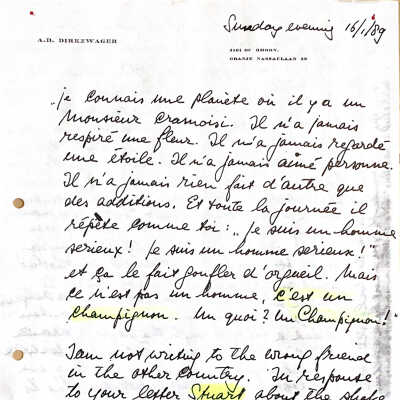 Sunday evening 16/1/89
A.D. DIRKZWAGER
ORANJE NASSAULAAN 29
„je connais une planète où il y a un
Monsieur Cramoisi. Il n'a jamais
respiré une fleur. Il n'a jamais regardé
une étoile. Il n'a jamais aimé personne.
Il n'a jamais rien fait d'autre que
des additions. Et toute la journée il
répète comme toi: „je suis un homme
serieux! je suis un homme serieux!"
et ça le fait gonfler d'orgueil. Mais
ce n'est pas un homme, c'est un
champignon. Un quoi? Un Champignon!"
I am not writing to the wrong friend
in the other country. In response
to your letter Stuart about the